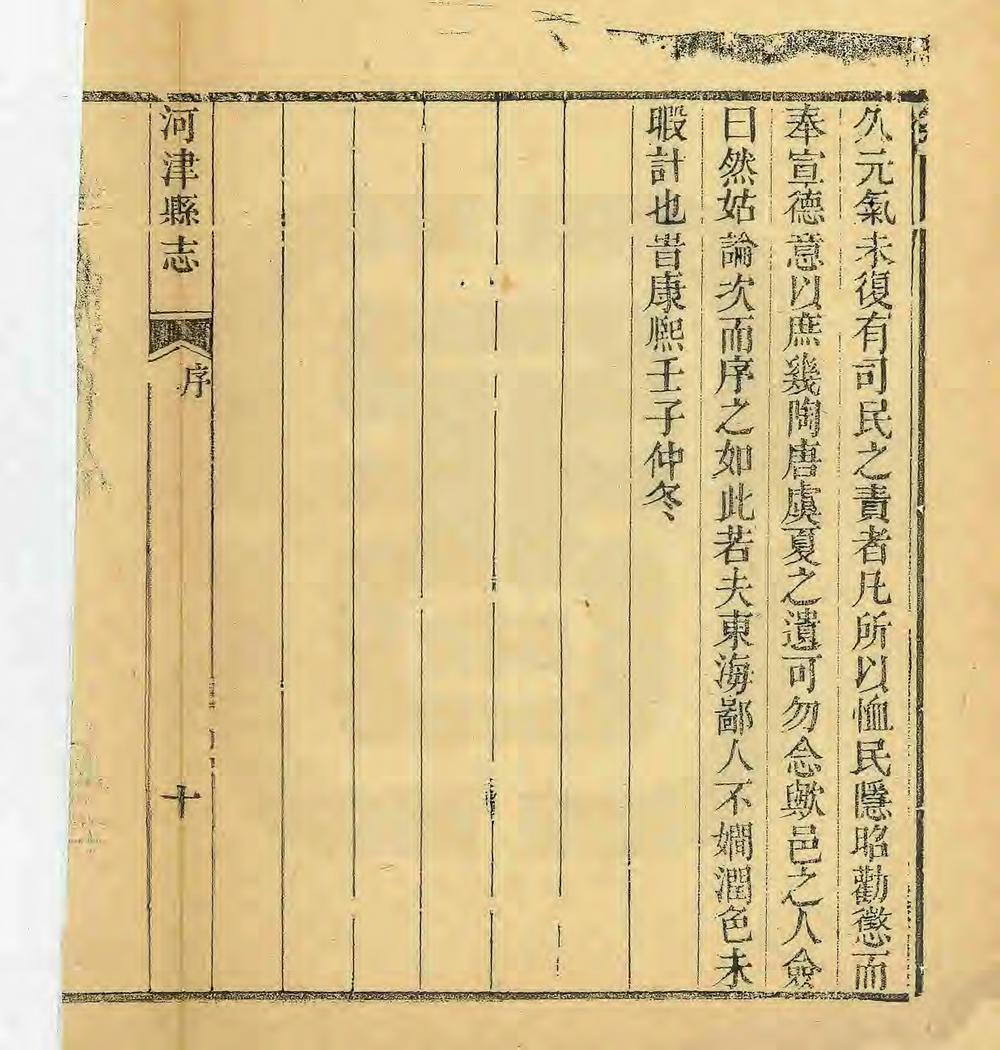 久元氣未復有司民之責者凡所以恤民隱昭勸懲而
奉宣德意以庶幾陶唐虞夏之遺可勿念歟邑之人僉
曰然姑論次而序之如此若夫東海鄙人不嫺潤色未
暇計也旹康熙壬子仲冬
河津縣志
序
十